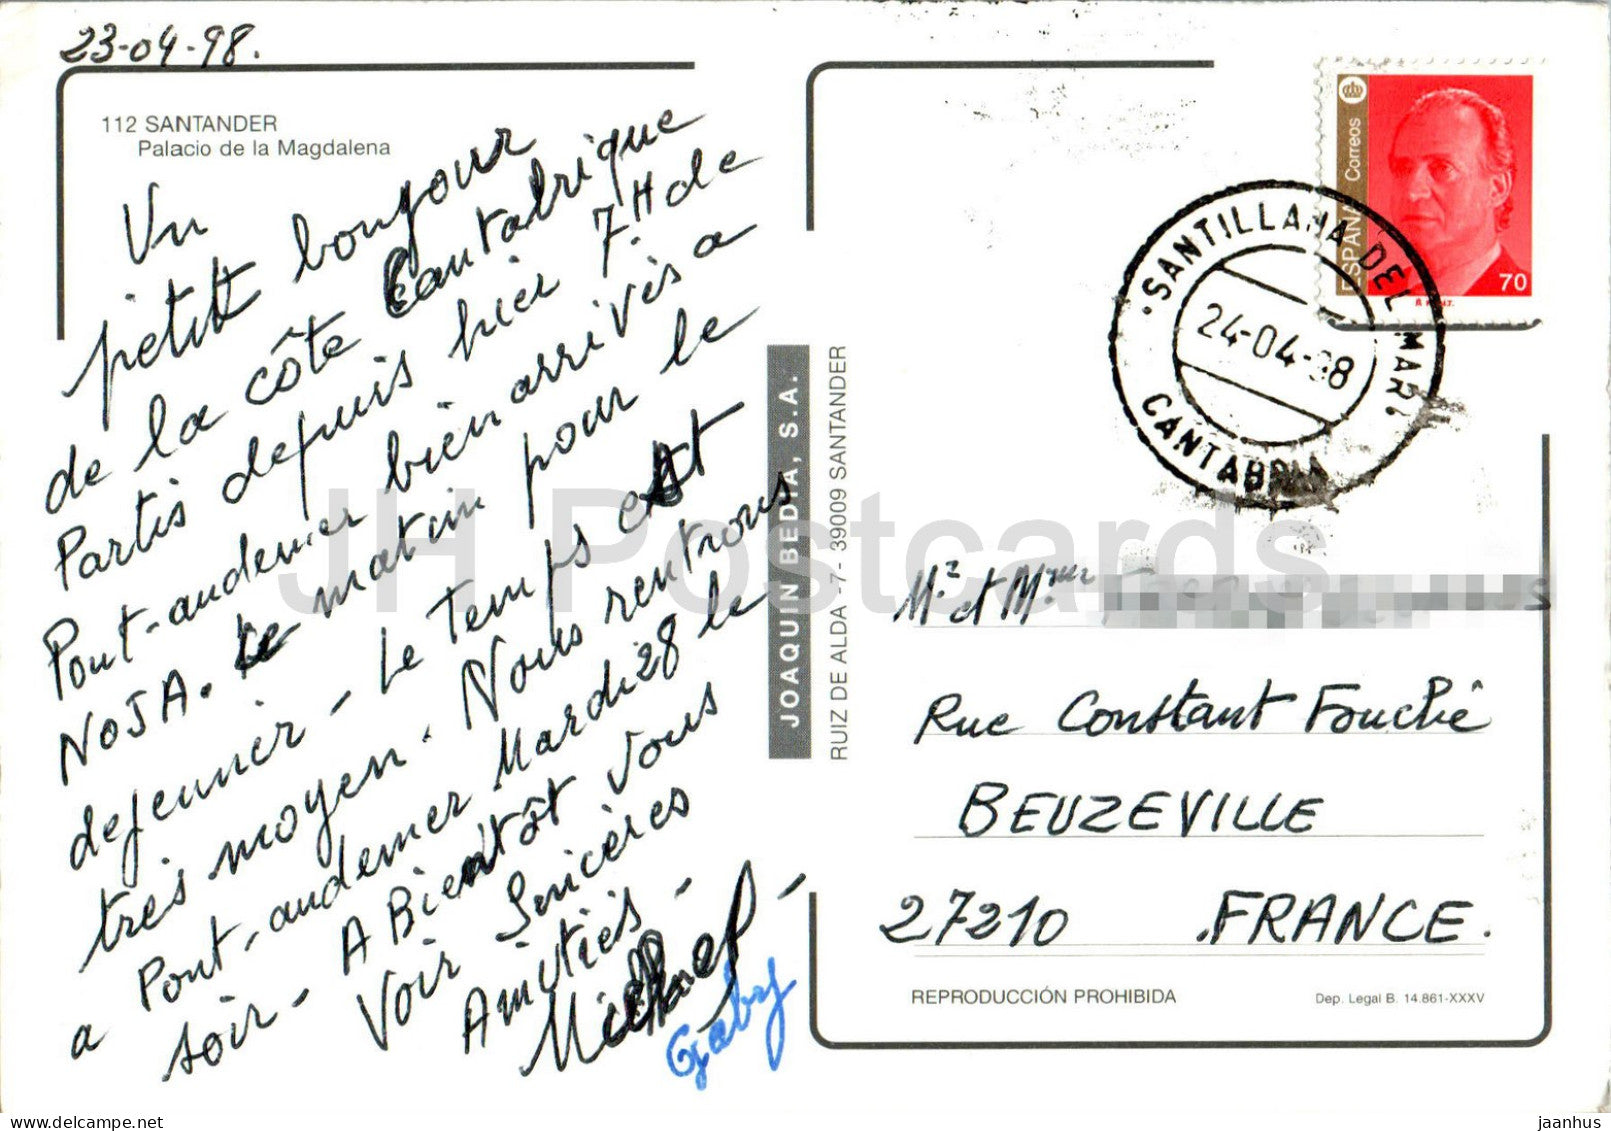 23-04-98.
112 SANTANDER
Palacio de la Magdalena
Un
petit bonjour
de la côte Cantabrique
Partis depuis hier 7.H de
Pont-audemer bien arrivés a
NOJA. le matin pour le
dejeunier - Le Temps est
très moyen. Nous rentrons
a Pont-audemer Mardi 28 le
soir - A Bientôt Vous
Voir Sincères
Amitiés -
Michel -
Gaby
JOAQUIN BEDIA, S.A.
RUIZ DE ALDA -7- 39009 SANTANDER
ESPAÑA Correos
70
SANTILLANA DEL MAR
24-04-98
CANTABRIA
Mr et Mme
Rue Constant Fouché
BEUZEVILLE
27210 .FRANCE.
REPRODUCCIÓN PROHIBIDA
Dep. Legal B. 14.861-XXXV
JH Postcards
jaanhus